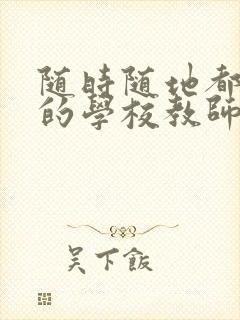 随時随地都
的學校教師
吴下飯